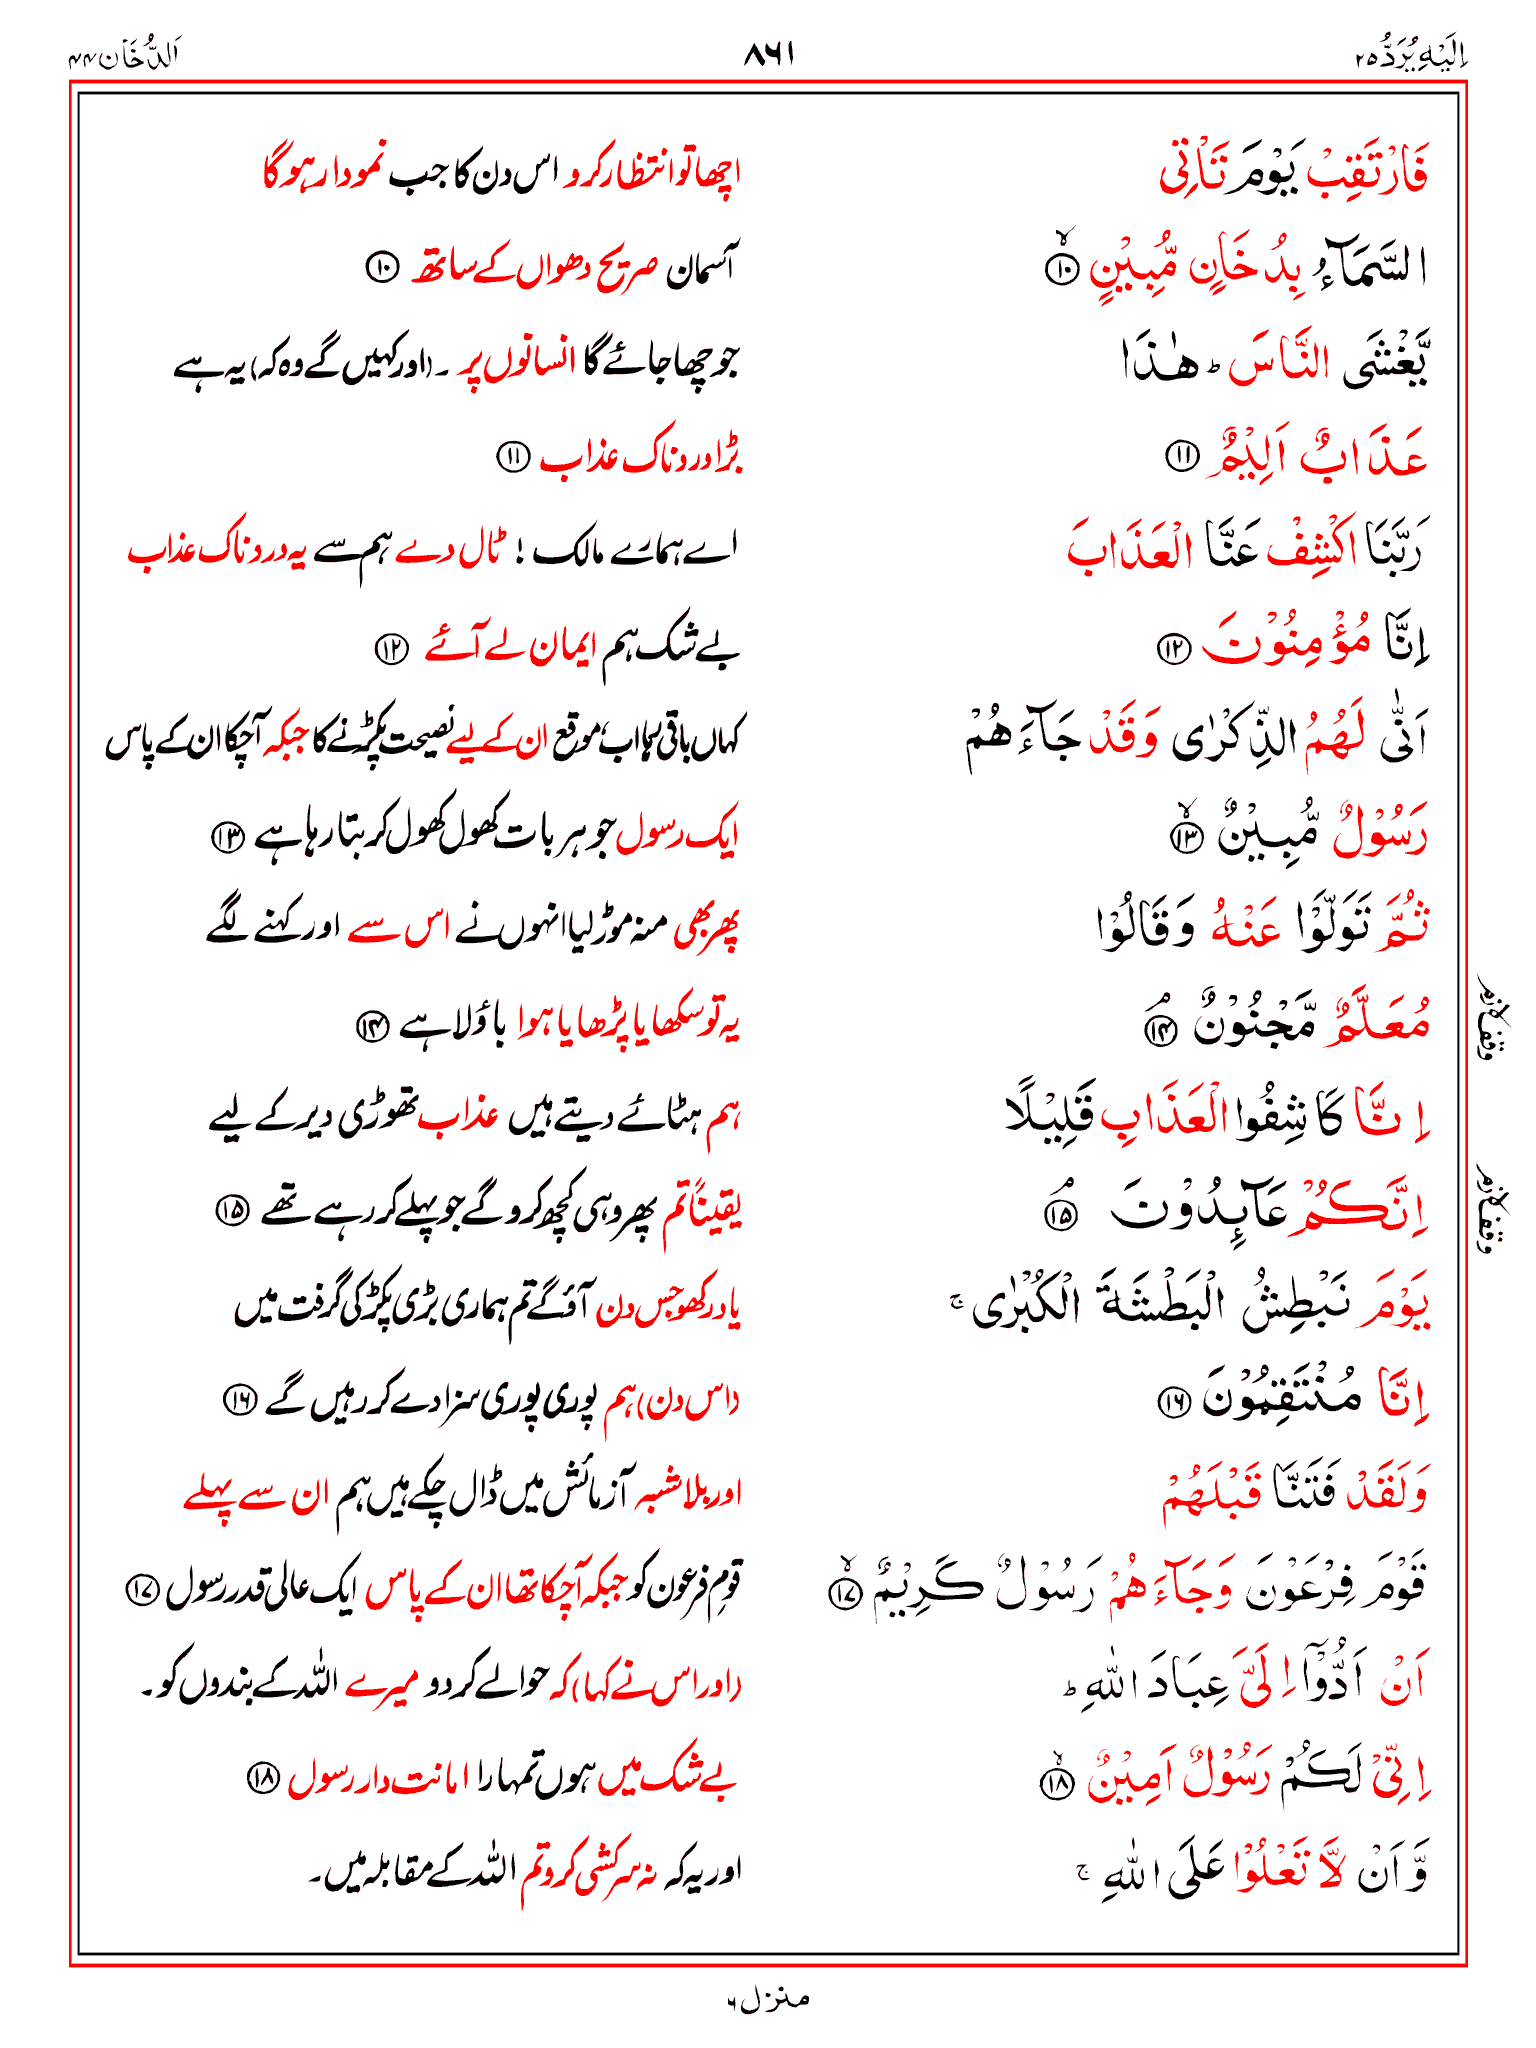 اِلَیْہِ یُرَدُّ ۲۵
۸۶۱
اَلدُّخَان ۴۴
فَارْتَقِبْ یَوْمَ تَاْتِی
اچھا تو انتظار کرو اس دن کا جب نمودار ہوگا
السَّمَآءُ بِدُخَانٍ مُّبِیْنٍ ۙ﴿۱۰﴾
آسمان صریح دھواں کے ساتھ ﴿۱۰﴾
یَّغْشَی النَّاسَ ؕ ھٰذَا
جو چھا جائے گا انسانوں پر ۔ (اور کہیں گے وہ کہ) یہ ہے
عَذَابٌ اَلِیْمٌ ﴿۱۱﴾
بڑا دردناک عذاب ﴿۱۱﴾
رَبَّنَا اکْشِفْ عَنَّا الْعَذَابَ
اے ہمارے مالک ! ٹال دے ہم سے یہ دردناک عذاب
اِنَّا مُؤْمِنُوْنَ ﴿۱۲﴾
بے شک ہم ایمان لے آئے ﴿۱۲﴾
اَنّٰی لَھُمُ الذِّکْرٰی وَقَدْ جَآءَھُمْ
کہاں باقی رہا اب، موقع ان کے لیے نصیحت پکڑنے کا جبکہ آچکا ان کے پاس
رَسُوْلٌ مُّبِیْنٌ ۙ﴿۱۳﴾
ایک رسول جو ہر بات کھول کھول کر بتا رہا ہے ﴿۱۳﴾
ثُمَّ تَوَلَّوْا عَنْہُ وَقَالُوْا
پھر بھی منہ موڑ لیا انہوں نے اس سے اور کہنے لگے
مُعَلَّمٌ مَّجْنُوْنٌ ۘ﴿۱۴﴾
یہ تو سکھایا پڑھایا ہوا باؤلا ہے ﴿۱۴﴾
وقف لازم
اِنَّا کَاشِفُوا الْعَذَابِ قَلِیْلًا
ہم ہٹائے دیتے ہیں عذاب تھوڑی دیر کے لیے
اِنَّکُمْ عَآئِدُوْنَ ۘ﴿۱۵﴾
یقیناً تم پھر وہی کچھ کرو گے جو پہلے کر رہے تھے ﴿۱۵﴾
وقف لازم
یَوْمَ نَبْطِشُ الْبَطْشَۃَ الْکُبْرٰی ۚ
یاد رکھو جس دن آؤ گے تم ہماری بڑی پکڑ کی گرفت میں
اِنَّا مُنْتَقِمُوْنَ ﴿۱۶﴾
(اس دن) ہم پوری پوری سزا دے کر رہیں گے ﴿۱۶﴾
وَلَقَدْ فَتَنَّا قَبْلَھُمْ
اور بلا شبہ آزمائش میں ڈال چکے ہیں ہم ان سے پہلے
قَوْمَ فِرْعَوْنَ وَجَآءَھُمْ رَسُوْلٌ کَرِیْمٌ ۙ﴿۱۷﴾
قومِ فرعون کو جبکہ آچکا تھا ان کے پاس ایک عالی قدر رسول ﴿۱۷﴾
اَنْ اَدُّوْٓا اِلَیَّ عِبَادَ اللّٰہِ ؕ
(اور اس نے کہا) کہ حوالے کر دو میرے اللہ کے بندوں کو ۔
اِنِّیْ لَکُمْ رَسُوْلٌ اَمِیْنٌ ۙ﴿۱۸﴾
بے شک میں ہوں تمہارا امانت دار رسول ﴿۱۸﴾
وَّ اَنْ لَّا تَعْلُوْا عَلَی اللّٰہِ ۚ
اور یہ کہ نہ سرکشی کرو تم اللہ کے مقابلہ میں ۔
منزل ۶